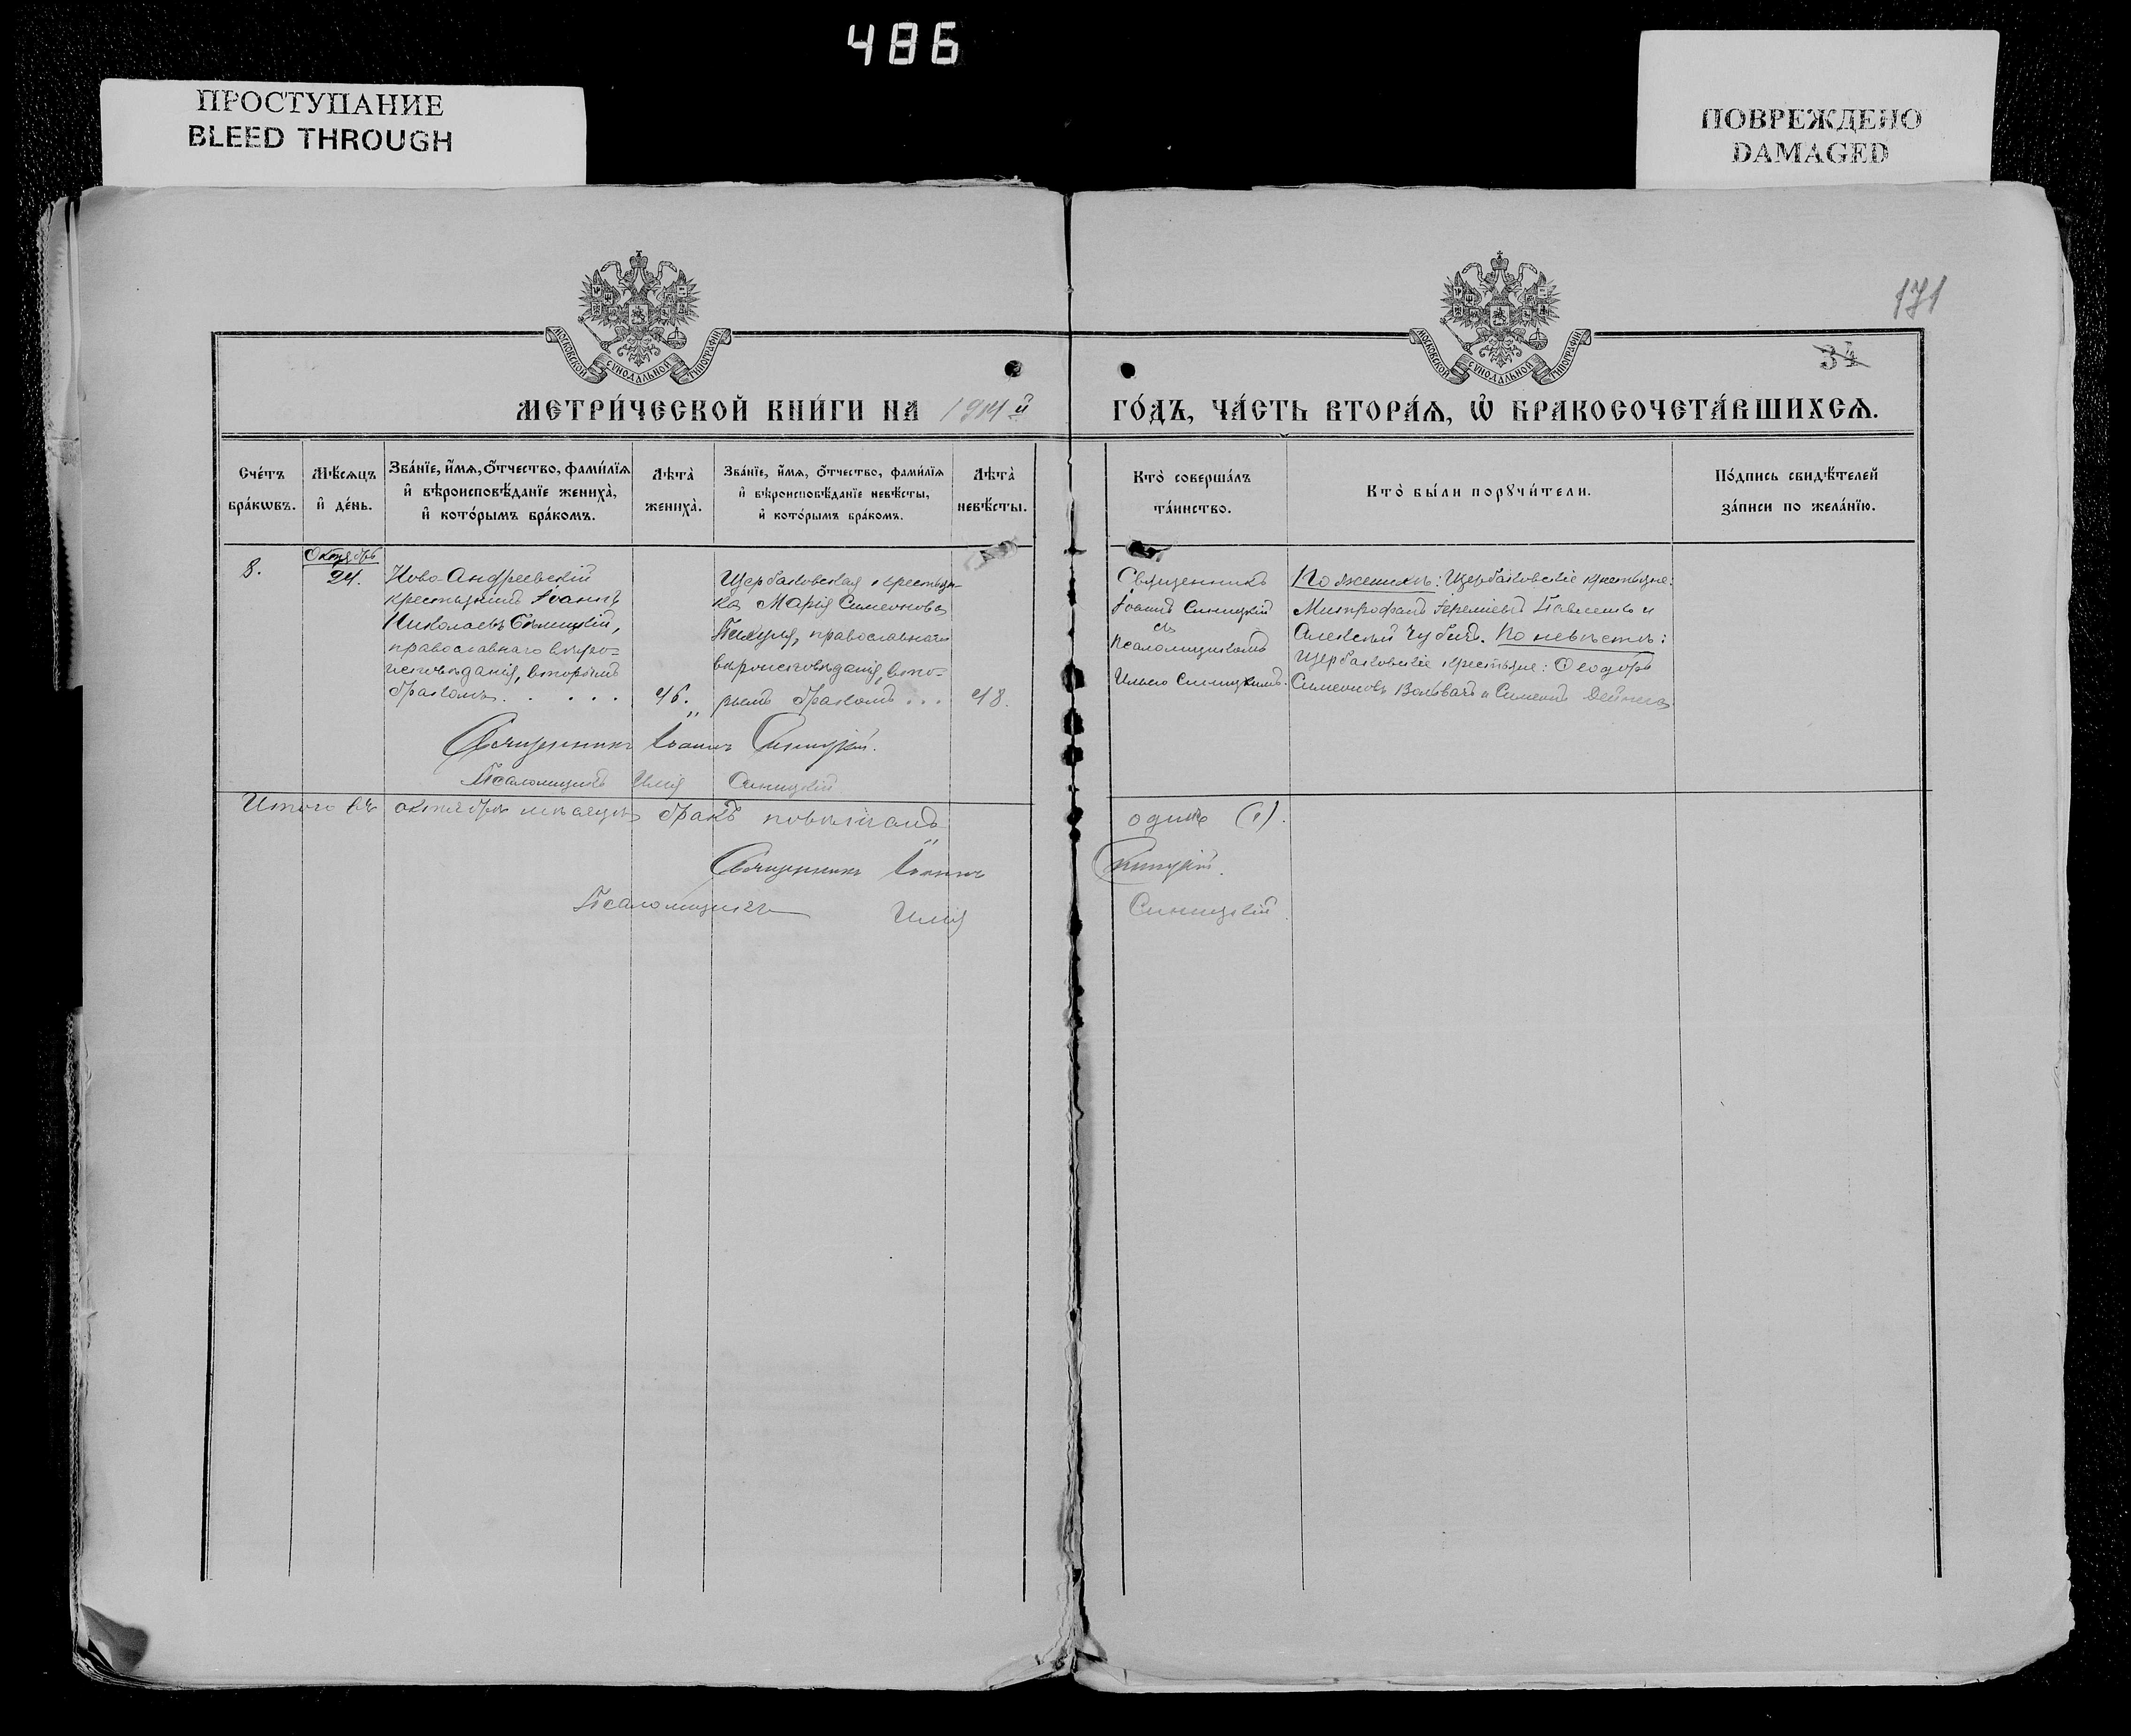 486
ПРОСТУПАНИЕ
BLEED THROUGH
ПОВРЕЖДЕНО
DAMAGED
171
34
МОСКОВСКОЙ СѴНОДАЛЬНОЙ ТИПОГРАФІИ
МОСКОВСКОЙ СѴНОДАЛЬНОЙ ТИПОГРАФІИ
МЕТРИ́ЧЕСКОЙ КНИ́ГИ НА 1914 й ГО́ДЪ, ЧА́СТЬ ВТОРА́Ѧ, Ѡ҆ БРАКОСОЧЕТА́ВШИХСѦ.
Сче́тъ бра́кѡвъ.
Мѣ́сѧцъ и҆ де́нь.
Зва́нїе, и҆́мѧ, ѻ҆́тчество, фами́лїѧ и҆ вѣроисповѣ́данїе жениха̀, и҆ кото́рымъ бра́комъ.
Лѣ́та̀ жениха̀.
Зва́нїе, и҆́мѧ, ѻ҆́тчество, фами́лїѧ и҆ вѣроисповѣ́данїе невѣ́сты, и҆ кото́рымъ бра́комъ.
Лѣ́та̀ невѣ́сты.
Кто̀ соверша́лъ та́инство.
Кто̀ бы́ли порꙋчи́тели.
По́дпись свидѣ́телей за́писи по жела́нїю.
8.
Октябрь
24.
Ново-Андреевскій
крестьянинъ Іоаннъ
Николаевъ Бѣлицкій,
православнаго вѣро=
исповѣданія, вторымъ
бракомъ . . . . .
46.
Щербаковская крестьян
ка Марія Симеонова
православнаго
вѣроисповѣданія, вто-
рымъ бракомъ . . .
48.
Священникъ
Іоаннъ Синицкій
съ
псаломщикомъ
Ильею Синицкимъ.
По женихѣ: Щербаковскіе крестьяне:
Митрофанъ Іереміевъ и
Алексѣй Чубичъ. По невѣстѣ:
Щербаковскіе крестьяне: Ѳеодоръ
Симеоновъ Вольвачъ и Симеонъ Дейнега
Священникъ Іоаннъ Синицкій.
Псаломщикъ Илія Синицкій.
Итого въ октябрѣ мѣсяцѣ бракъ повѣнчанъ одинъ (1).
Священникъ Іоаннъ Синицкій.
Псаломщикъ Илія Синицкій.